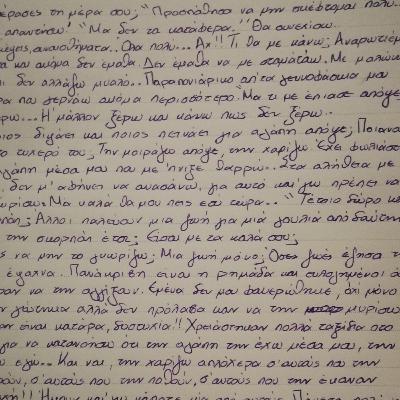 έρασες τη μέρα σου; "Προσπάθησα να μην σκέφτομαι πολύ..
απαντήσω! "Μα δεν τα κατάφερα." Θα συνεχίσω.
σκέψεις, συναισθήματα.. Όλα πολύ... Αχ!! Τι θα με κάνω; Αναρωτιέμ
και ακόμα δεν έμαθα. Δεν έμαθα να με σταματάω. Με μαλών
ι δεν αλλάζω μυαλό.. Παραπονιάρικο απ'τα γεννοφάσκια μου
ρα που γερνάω ακόμα περισσότερο. "Μα τι με έπιασε απόψε;
έρω... Ή μάλλον ξέρω και κάνω πως δεν ξέρω..
ιος διψάει και ποιος πεινάει για αγάπη απόψε; Ποιανο
το τυχερό του; Την μοιράζω απόψε, την χαρίζω. Έχει φωλιάσει
αγάπη μέσα μου που με 'πνιξε θαρρώ.. Στα αλήθεια με
, δεν μ'αφήνει να ανασάνω, για αυτό και 'γω πρέπει να
χωρίσω. Μα καλά θα μου πεις εσύ τώρα.. "Τέτοιο δώρο κα
Άλλοι παλεύουν μια ζωή για μια γουλιά από δαύτη
την σκορπάν έτσι; Είσαι με τα καλά σου;
να μην το γνωρίζω; Μια ζωή μόνο; Όσες ζωές έζησα τη
έψαχνα. Πανάκριβη είναι η ρημάδα και ευλογημένοι ό
σαν να την αγγίξουν. Εμένα δεν μου φανερώθηκε, όχι μόνο
γεύτηκα αλλά δεν πρόλαβα καν να την μυρίσω
αν είναι κατάρα, δυστυχία!! Χρειάστηκαν πολλά ταξίδια στο
για να κατανοήσω ότι την αγάπη την έχω μέσα μου, την
εγώ... Και ναι, την χαρίζω απλόχερα σ'αυτούς που την
σ'αυτούς που την ποθούν, σ'αυτούς που την έκαναν